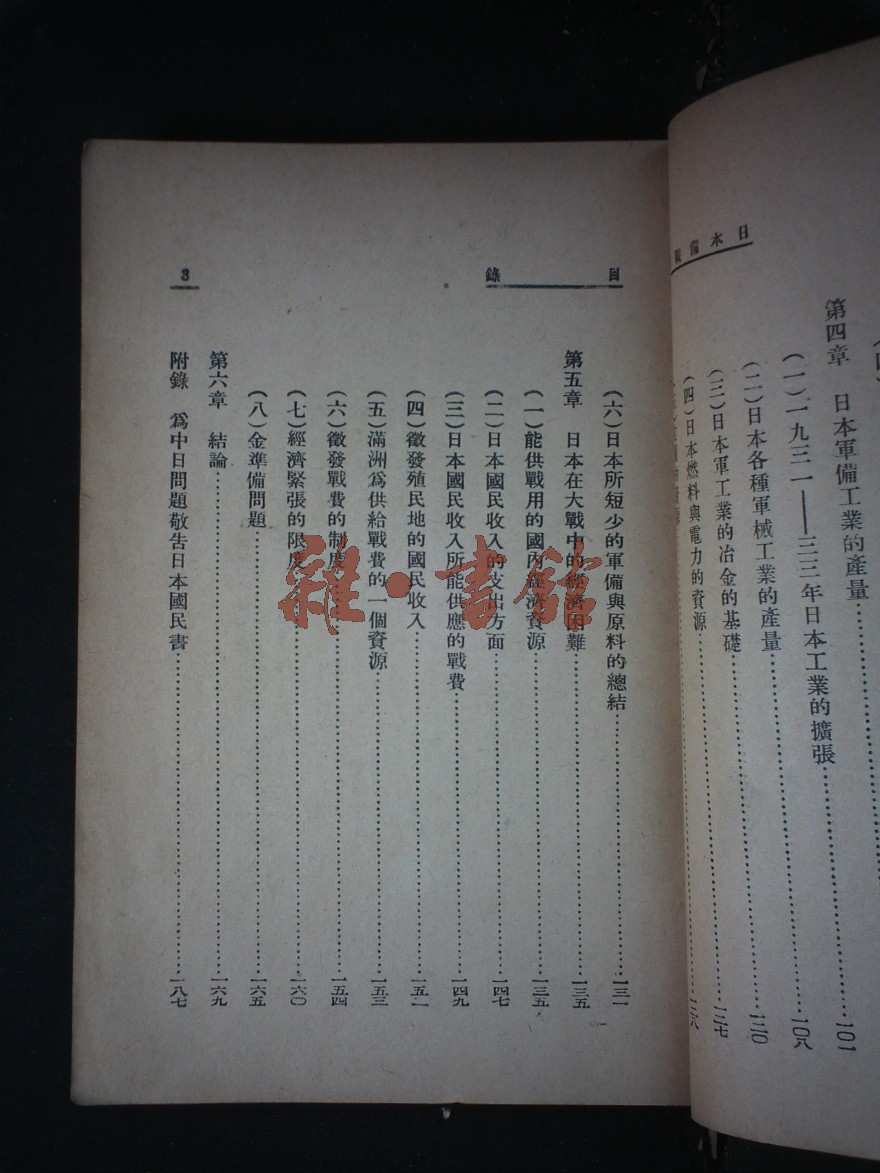 日本備戰
第四章　日本軍備工業的產量……一〇一
（一）一九三一——三三年日本工業的擴張……一〇八
（二）日本各種軍械工業的產量……一二〇
（三）日本軍工業的冶金的基礎……一二七
（四）日本燃料與電力的資源
目錄
3
（六）日本所短少的軍備與原料的總結……一三一
第五章　日本在大戰中的經濟困難……一三五
（一）能供戰用的國內經濟資源……一三五
（二）日本國民收入的支出方面……一四七
（三）日本國民收入所能供應的戰費……一四九
（四）徵發殖民地的國民收入……一五二
（五）滿洲爲供給戰費的一個資源……一五三
（六）徵發戰費的制度……一五四
（七）經濟緊張的限度……一六〇
（八）金準備問題……一六五
第六章　結論……一六九
附錄　爲中日問題敬告日本國民書……一八七
雜·書館